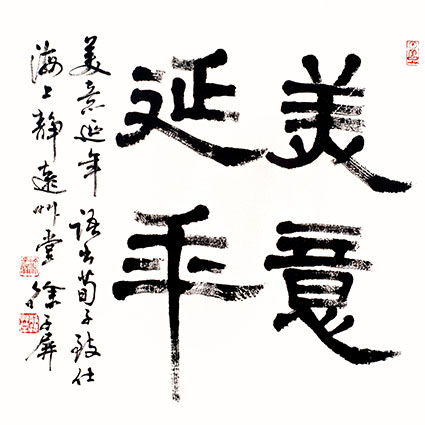 美意
延年
美意延年 語出荀子致仕
海上靜遠草堂 徐子屏